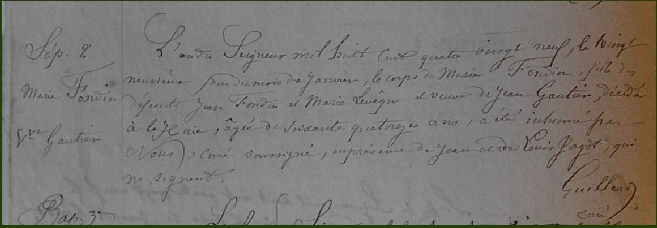 Sép. 2
Marie Fondin
Vve Gautier
L'an du Seigneur mil huit cent quatre vingt neuf, le vingt
neuvième jour du mois de Janvier, le corps de Marie Fondin, fille des
défunts Jean Fondin et Marie Levêque et veuve de Jean Gautier, décédée
à la Haie, âgée de soixante quatorze ans, a été inhumé par
Nous, curé soussigné, en présence de Jean et de Louis Pagot, qui
ne signent.
Guillard
curé
Bap. 3